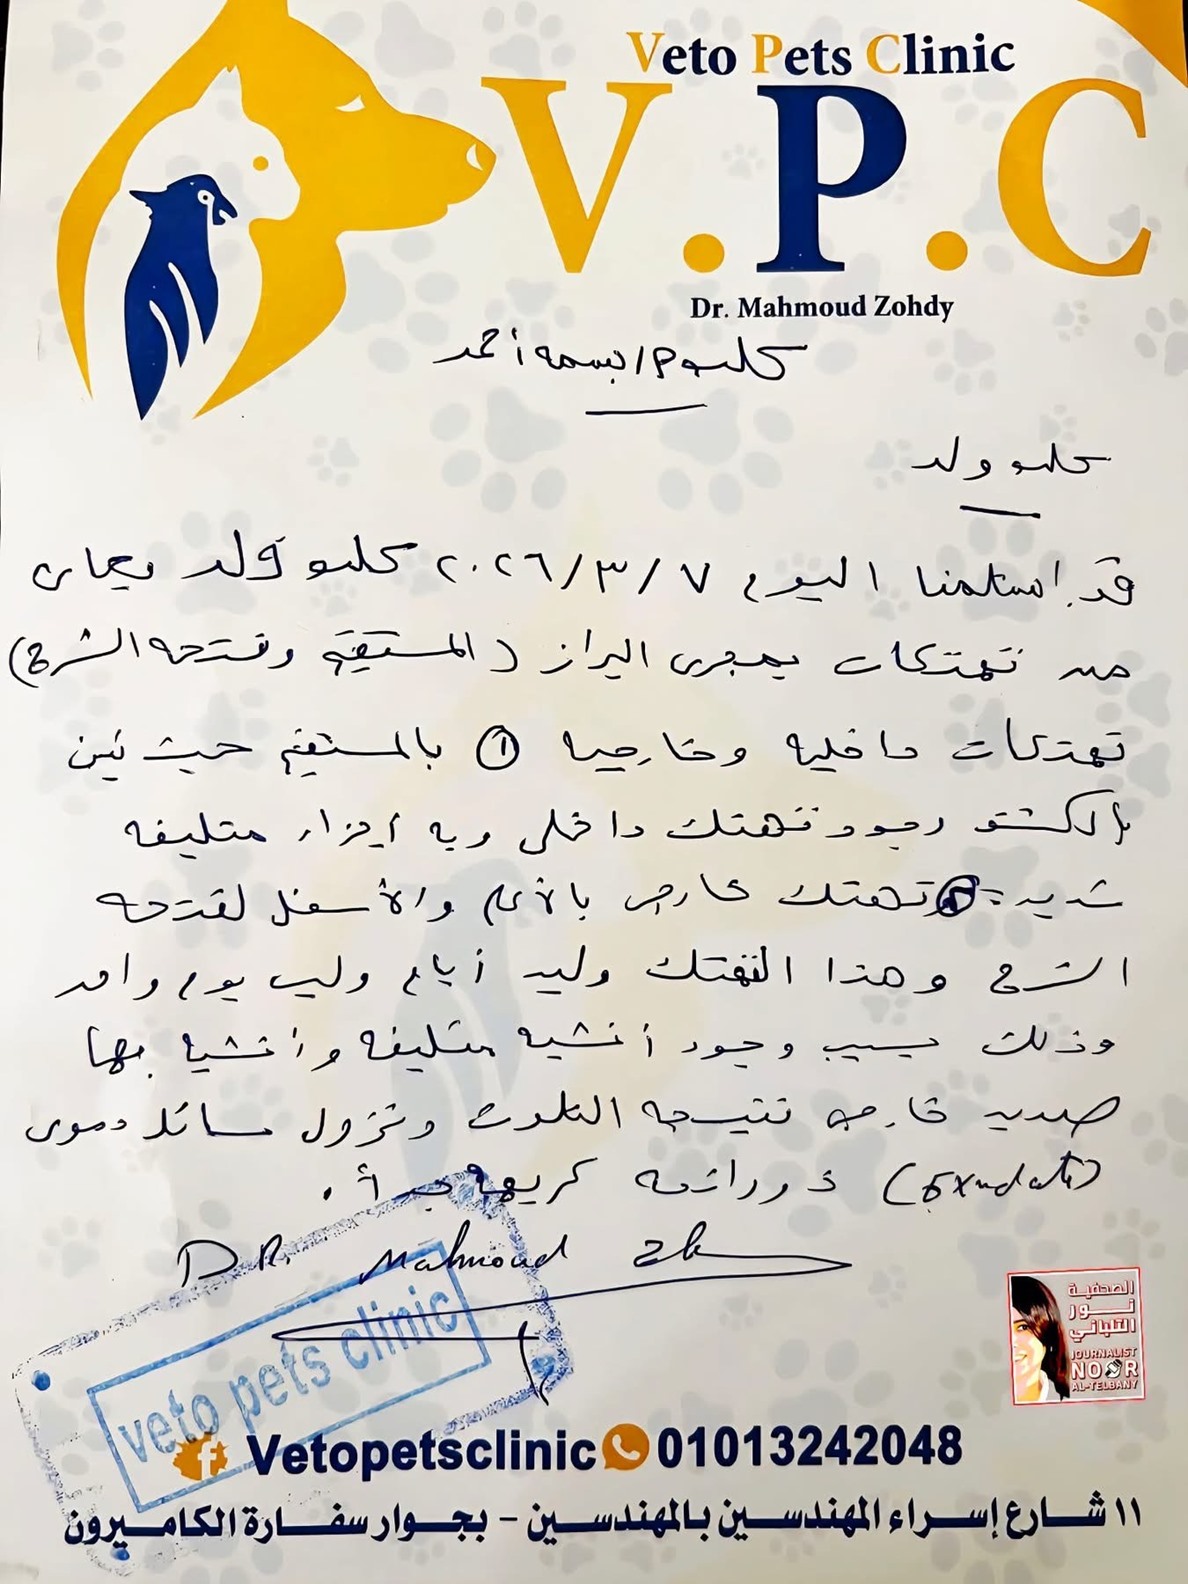 Veto Pets Clinic
V.P.C
Dr. Mahmoud Zohdy
كلبو م/ بسمه أحمد
كلبو ولد
قد استلمنا اليوم ٢٠٢٦/٣/٧ كلبو ولد يعانى
من تهتكات بمجرى البراز (المستقيم وفتحه الشرج)
تهتكات داخليه وخارجيه ① بالمستقيم حيث تبين
بالكشف وجود تهتك داخلى وبه أجزاء متليفه
شديدة ② تهتك خارجى بالأعلى والأسفل لفتحه
الشرج وهذا التهتك وليد أيام وليس يوم واحد
وذلك بسبب وجود أنسجه متليفه وأنسجه بها
صديد خارجه نتيجه التلوث ونزول سائل دموى
(Exudate) ذو رائحه كريهه جداً.
DR. Mahmoud
veto pets clinic
الصحفية
نور
التلباني
JOURNALIST
NOOR
AL-TELBANY
Vetopetsclinic 01013242048
١١ شارع إسراء المهندسين بالمهندسين - بجوار سفارة الكاميرون